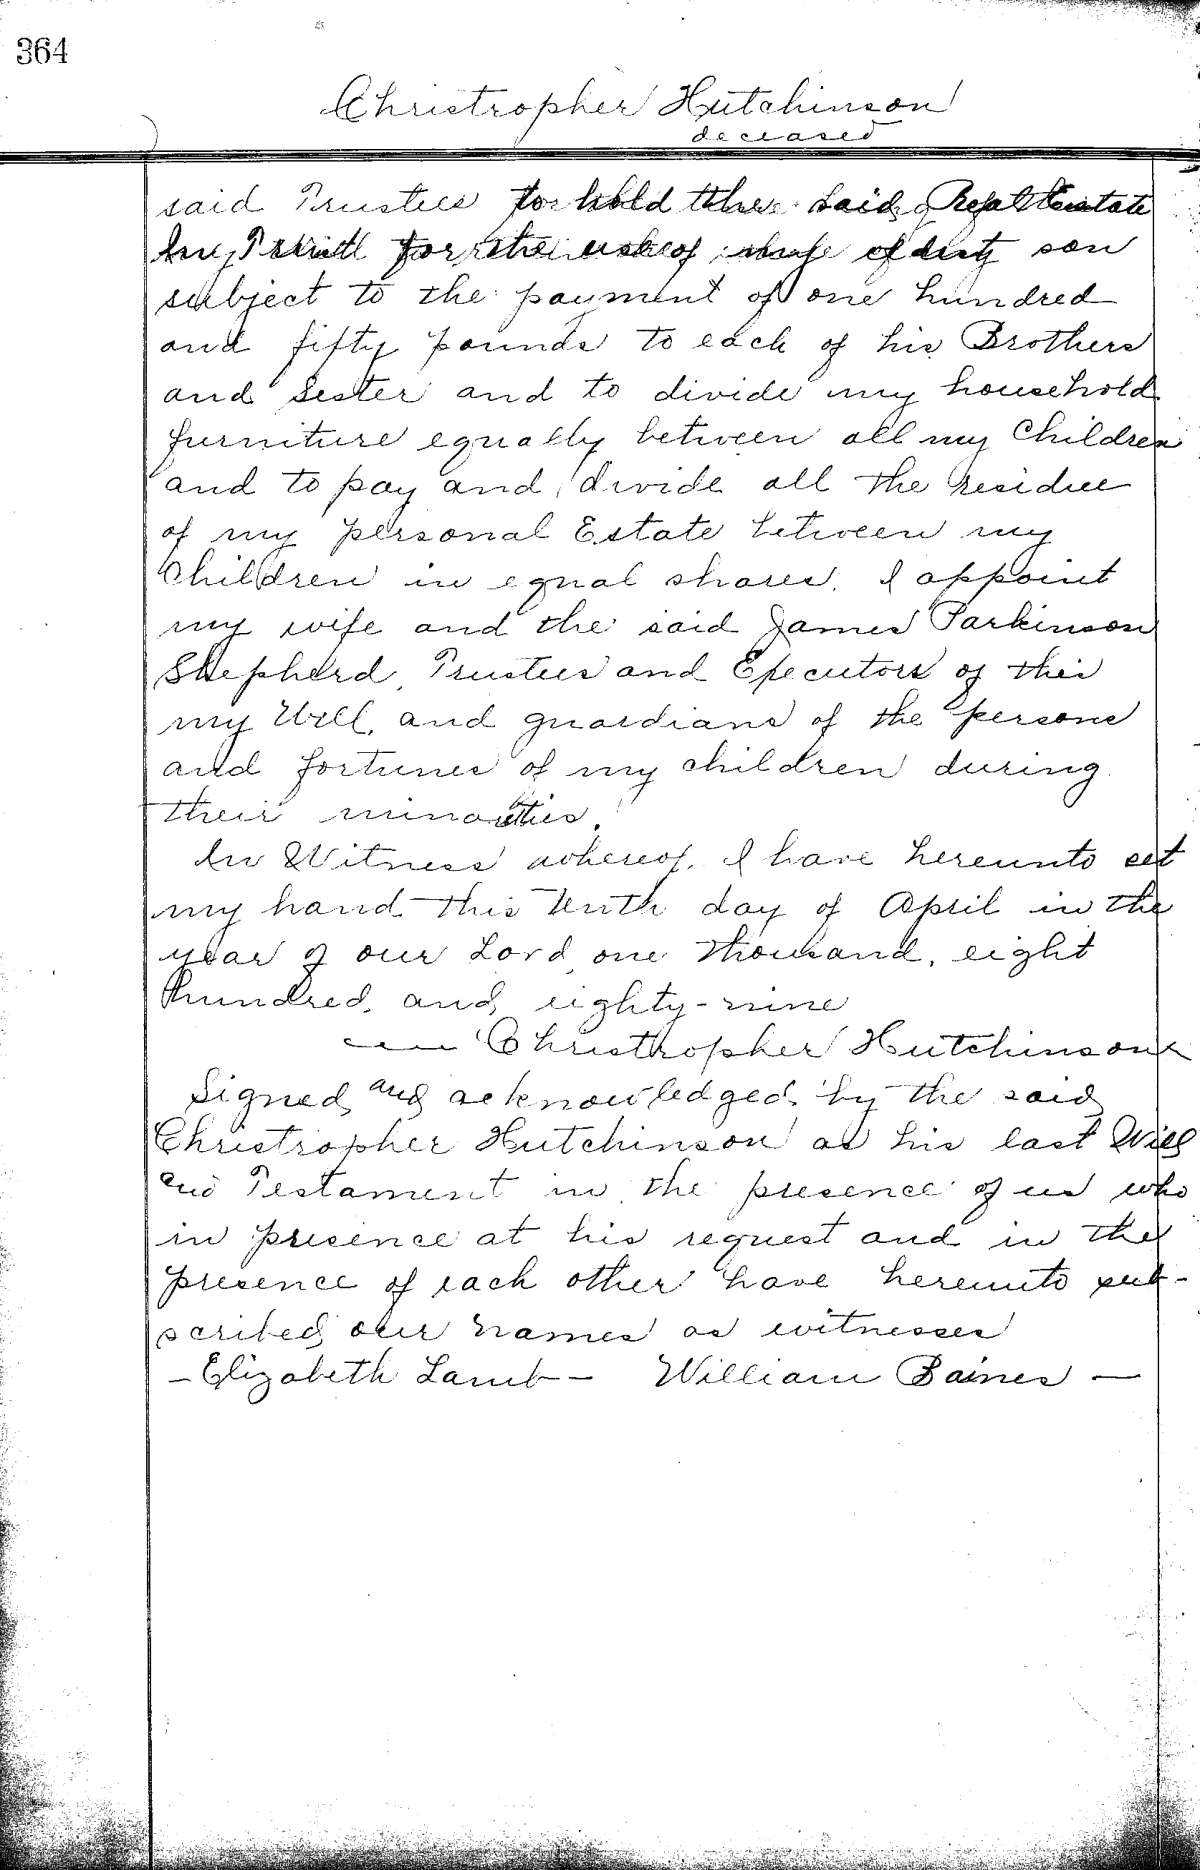 364
Christropher Hutchinson
deceased
said Trustees to hold the said Real Estate
In Trust for the use of my eldest son
subject to the payment of one hundred
and fifty pounds to each of his Brothers
and Sister and to divide my household
furniture equally between all my Children
and to pay and divide all the residue
of my personal Estate between my
Children in equal shares. I appoint
my wife and the said James Parkinson
Shepherd, Trustees and Executors of this
my Will, and guardians of the persons
and fortunes of my children during
their minorities.
In Witness whereof, I have hereunto set
my hand this tenth day of April in the
year of our Lord, one thousand, eight
hundred, and, eighty-nine
Christropher Hutchinson
Signed, and acknowledged, by the said
Christropher Hutchinson as his last Will
and Testament in the presence of us who
in presence at his request and in the
presence of each other have hereunto sub-
scribed our names as witnesses
- Elizabeth Lamb - William Baines -